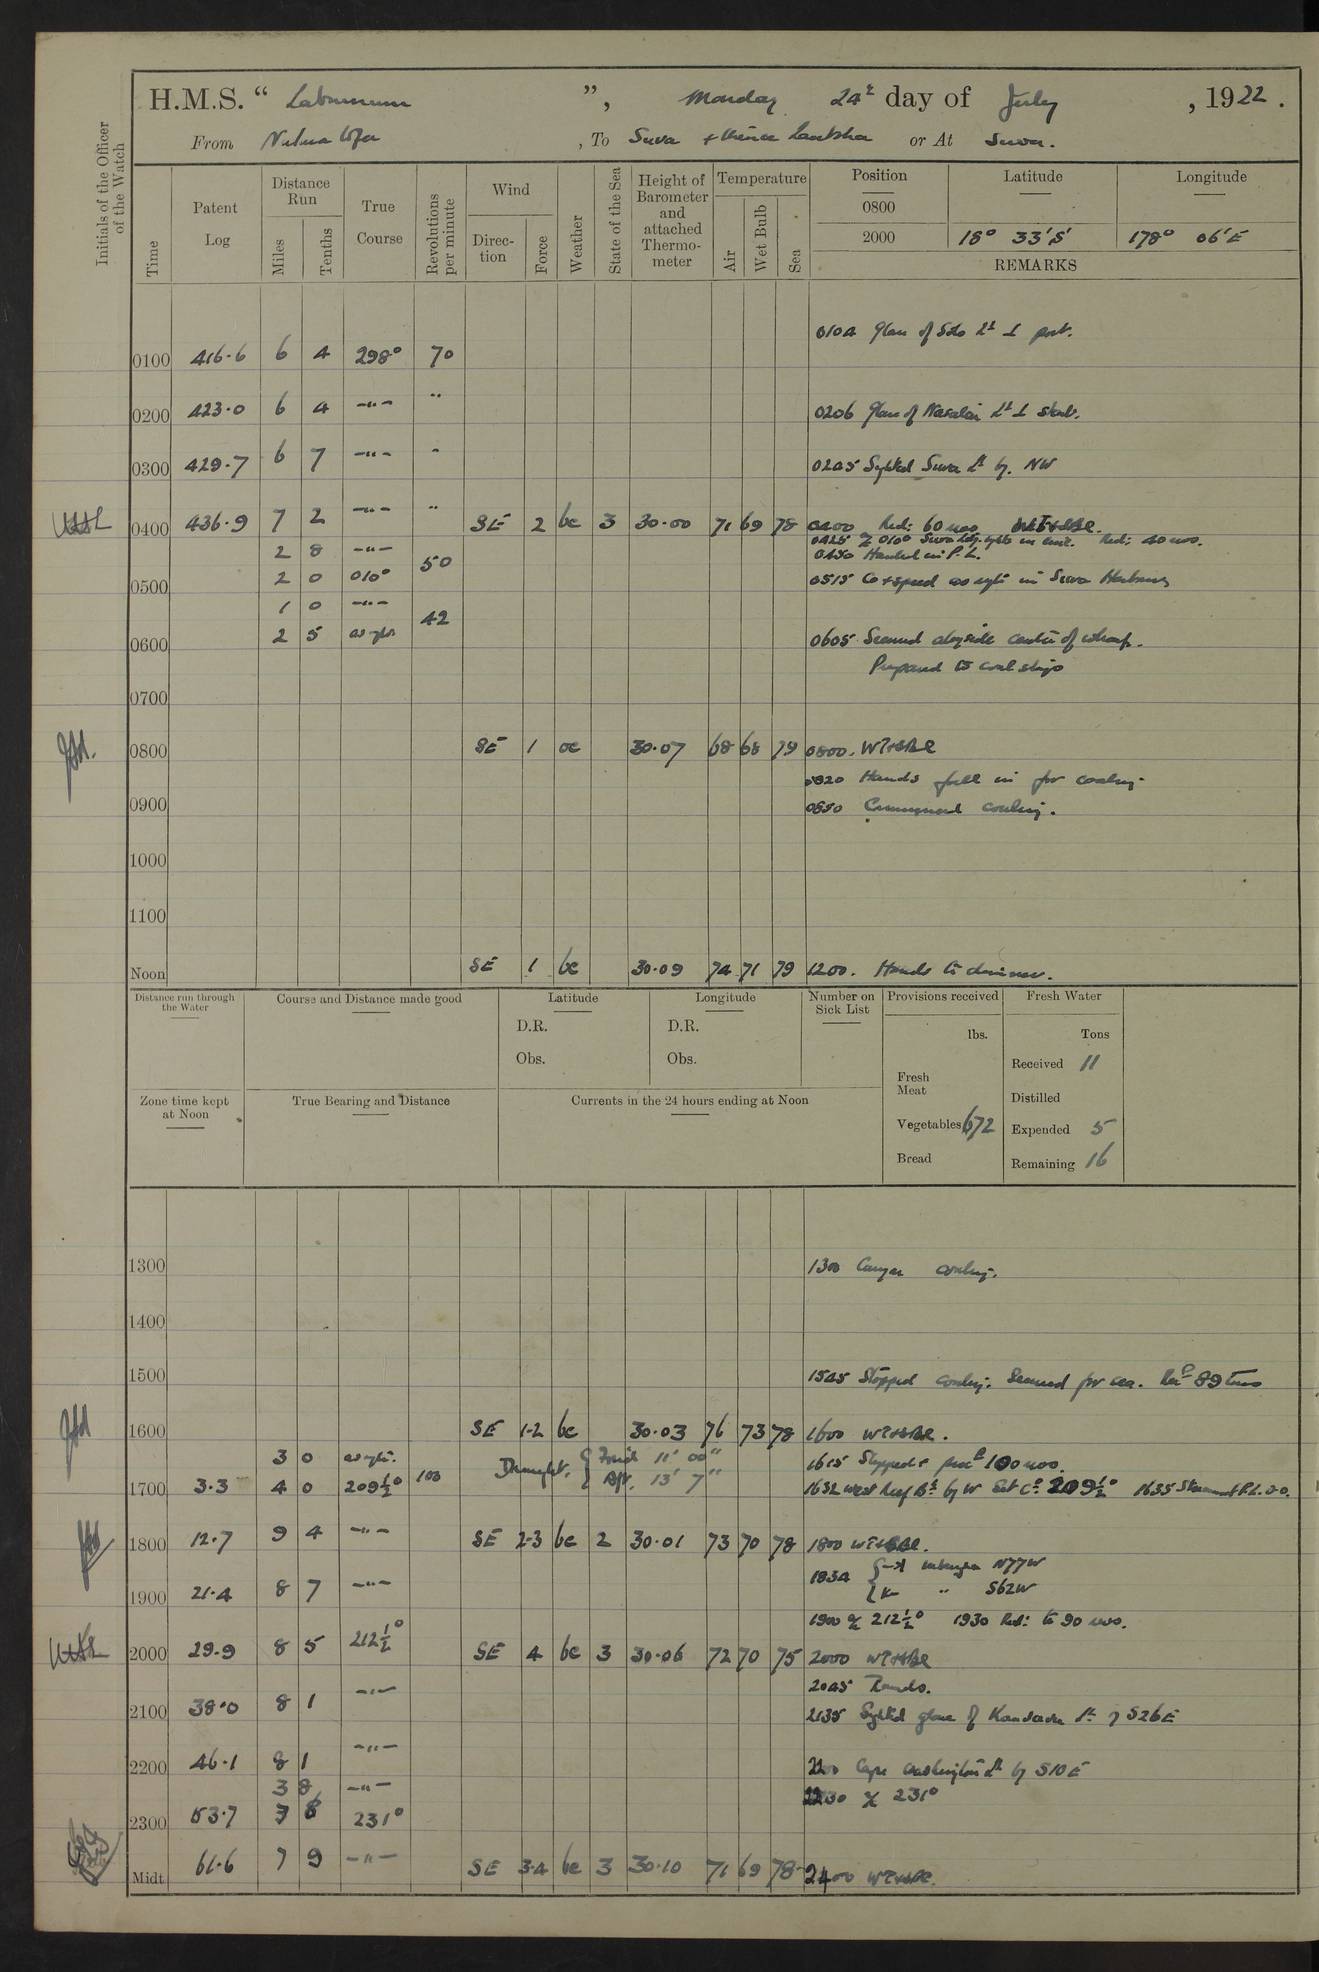 H.M.S. “ Laburnum ”, Monday 24th day of July, 1922.
From Nukualofa, To Suva + thence Lautoka or At Suva.
Initials of the Officer of the Watch
Time
Patent Log
Distance Run
Miles
Tenths
True Course
Revolutions per minute
Wind
Direction
Force
Weather
State of the Sea
Height of Barometer and attached Thermometer
Temperature
Air
Wet Bulb
Sea
Position
Latitude
Longitude
0800
2000 18° 33' S 178° 06' E
REMARKS
0104 Glare of Solo Lt ⊥ port.
0100 416.6 6 4 298° 70
0200 423.0 6 4 —"— " 0206 Glare of Nasalai Lt ⊥ starb.
0300 429.7 6 7 —"— " 0245 Sighted Suva Lt by. NW
0400 436.9 7 2 —"— " SE 2 bc 3 30.00 71 69 78 0400 Red: 60 revs.
2 8 —"— 0425 a/c 010° Suva ldg. lights in line. Red: 40 revs.
50 0450 Handed in P.L.
0500 2 0 010° 0515 Co + speed as reqte in Suva Harbour
1 0 —"—
42
0600 2 5 as reqte 0605 Secured alongside centre of wharf.
Prepared to coal ship
0700
0800 SE 1 oc 30.07 68 68 79 0800. WT+SBR
0820 Hands fall in for coaling
0900 0850 Commenced coaling.
1000
1100
Noon SE 1 bc 30.09 74 71 79 1200. Hands to dinner.
Distance run through the Water
Course and Distance made good
Latitude
D.R.
Obs.
Longitude
D.R.
Obs.
Number on Sick List
Provisions received
lbs.
Fresh Meat
Vegetables 672
Bread
Fresh Water
Tons
Received 11
Distilled
Expended 5
Remaining 16
Zone time kept at Noon
True Bearing and Distance
Currents in the 24 hours ending at Noon
1300 1300 Carry on coaling.
1400
1500 1545 Stopped coaling. Secured for sea. Recd 89 tons
1600 SE 1-2 bc 30.03 76 73 78 1600 WT+SBR.
3 0 as reqte. Draught. { Ford 11' 00" 1615 Slipped + procd 100 revs.
Aft. 13' 7"
1700 3.3 4 0 209½° 100 1632 West Reef Bn by W Set Co 209½° 1635 Streamed P.L. 0.0.
1800 12.7 9 4 —"— SE 2-3 bc 2 30.01 73 70 78 1800 WT+SBR.
1834 N77W
" S62W
1900 21.4 8 7 —"—
1900 a/c 212½° 1930 Red: to 90 revs.
2000 29.9 8 5 212½° SE 4 bc 3 30.06 72 70 75 2000 WT+SBR
2045 Rounds.
2100 38.0 8 1 —"— 2135 Sighted glare of Kandavu Lt by S26E
2200 46.1 8 1 —"— 2200 Cape Washington Lt by S10E
3 8 —"— 2230 a/c 231°
2300 53.7 3 8 231°
Midt 61.6 7 9 —"— SE 3.4 bc 3 30.10 71 69 78 2400 WT+SBR.